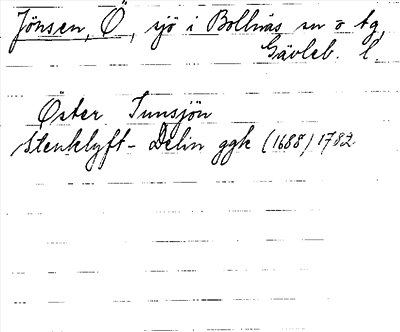 Jönsen, Ö, sjö i Bollnäs sn o tg,
Gävleb. l.
Öster Tunsjön
Stenklyft - Delin ggk (1688) 1782